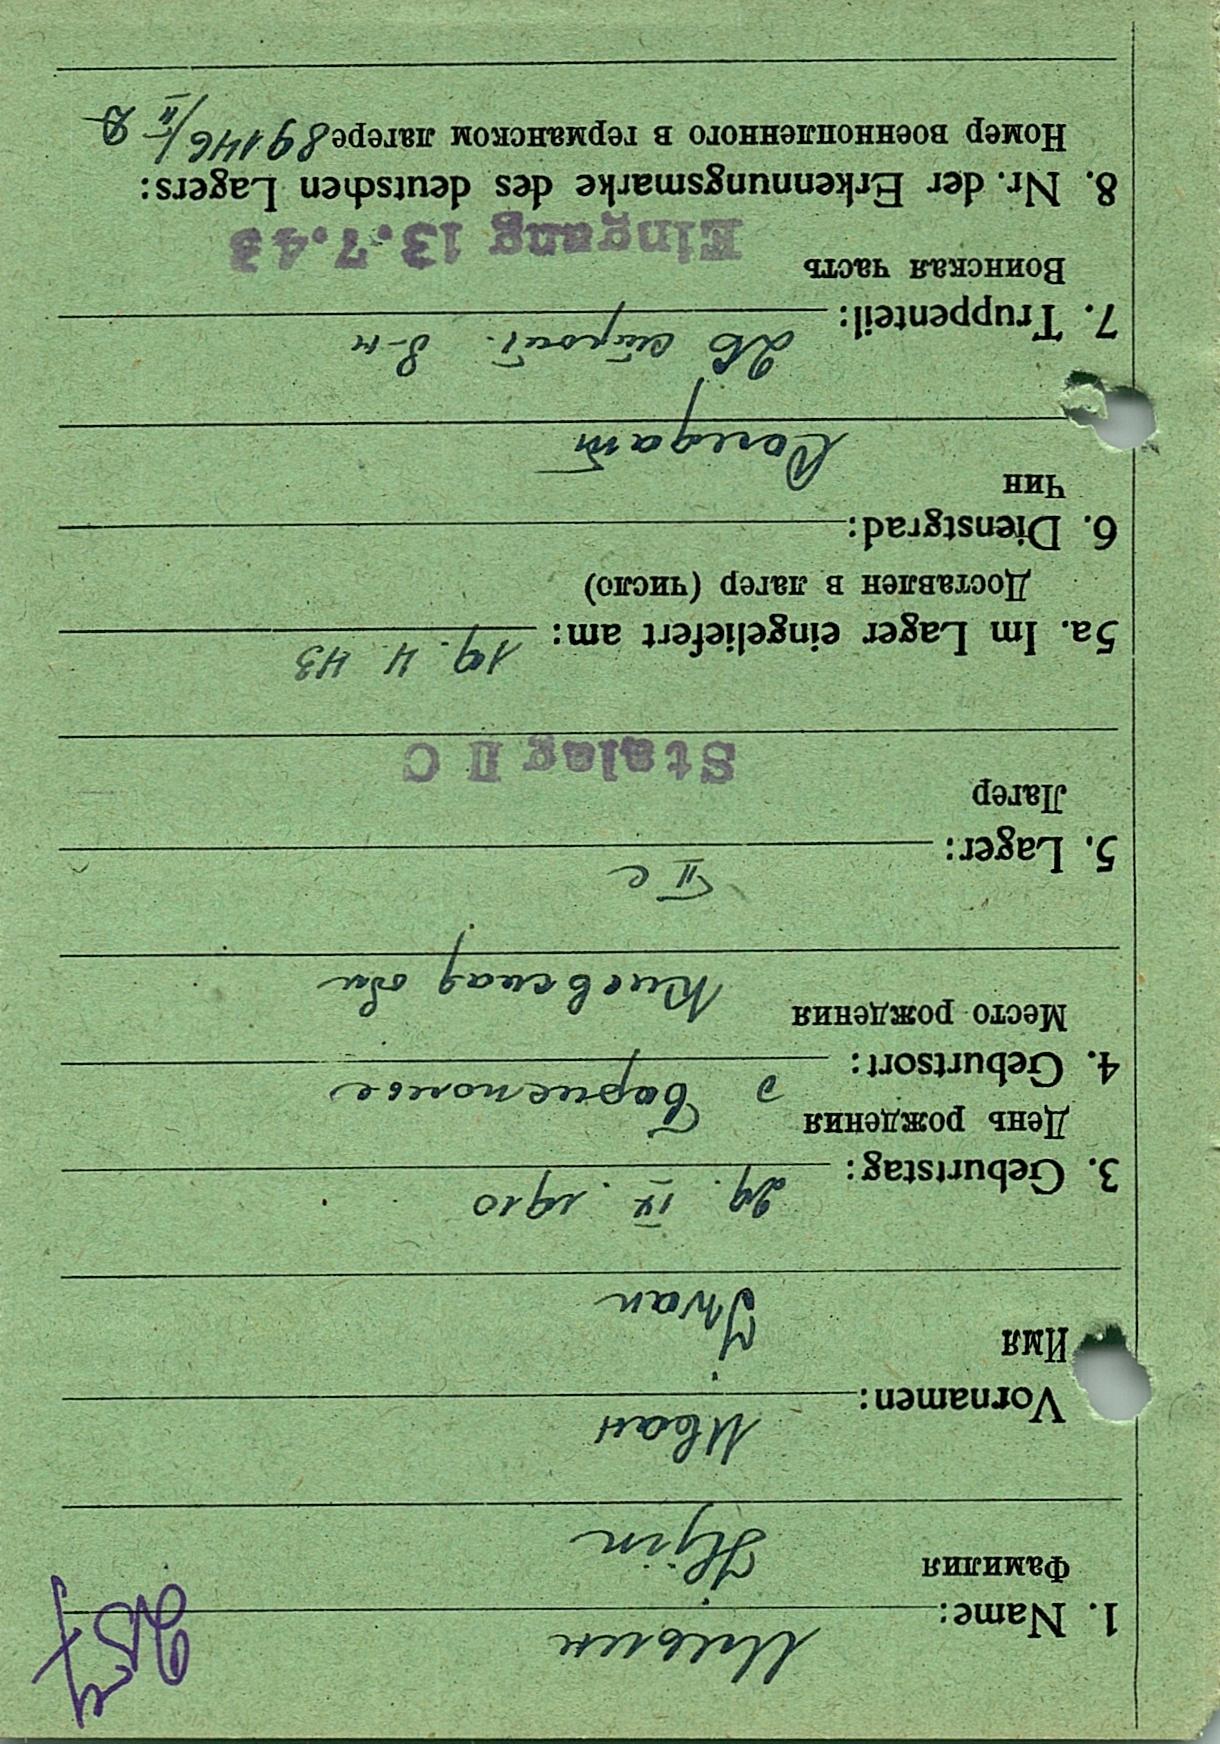 1. Name: Ильин
Фамилия Iljin
Vornamen: Иван
Имя Iwan
3. Geburtstag: 29. IV. 1910
День рождения
4. Geburtsort: Бориспол
Место рождения Киевская обл
5. Lager: II c
Лагер Stalag II C
5a. Im Lager eingeliefert am: 19. 4 43
Доставлен в лагер (число)
6. Dienstgrad:
Чин Солдат
7. Truppenteil: 26
Воинская часть Eingang 13.7.43
8. Nr. der Erkennungsmarke des deutschen Lagers:
Номер военнопленного в германском лагере 89146/II D